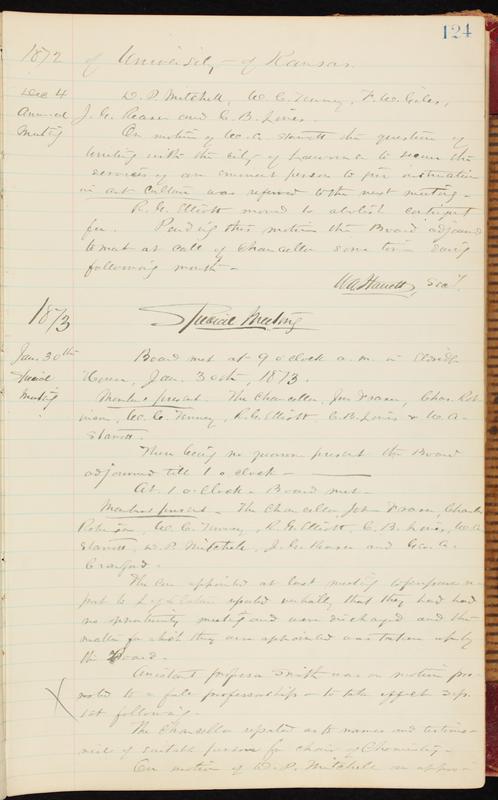 124
1872 of University of Kansas.
Dec 4 D. P. Mitchell, W. C. Tenney, F. W. Giles,
Annual J. G. Reaser and C. B. Lines.
Meeting On motion of W. A. Starrett the question of
uniting with the city of Lawrence to secure the
services of an eminent person to give instruction
in art culture was referred to the next meeting.
R. G. Elliott moved to abolish contingent
fee. Pending this motion the Board adjourned
to meet at call of Chancellor some time during
following month.
W. A. Starrett, Sec'y.
1873 Special Meeting
Jan. 30th Board met at 9 o'clock a.m. in Eldridge
Special House, Jan. 30th, 1873.
Meeting Members present. The Chancellor, Jno Fraser, Chas. Rob-
inson, W. C. Tenney, R. G. Elliott, C. B. Lines & W. A.
Starrett.
There being no quorum present the Board
adjourned till 1 o'clock
At 1 o'clock Board met
Members present - The Chancellor John Fraser, Charles
Robinson, W. C. Tenney, R. G. Elliott, C. B. Lines, W. A.
Starrett, D. P. Mitchell, J. G. Reaser and Geo. A.
Crawford.
The Com appointed at last meeting to prepare re-
port to Legislature reported verbally that they had had
no opportunity meeting and were discharged and the
matter for which they were appointed was taken up by
the Board.
X Assistant professor Smith was on motion pro-
moted to a full professorship to take effect Sep.
1st following.
The Chancellor reported as to names and testimo-
nials of suitable persons for chair of Chemistry.
On motion of D. P. Mitchell an appro-